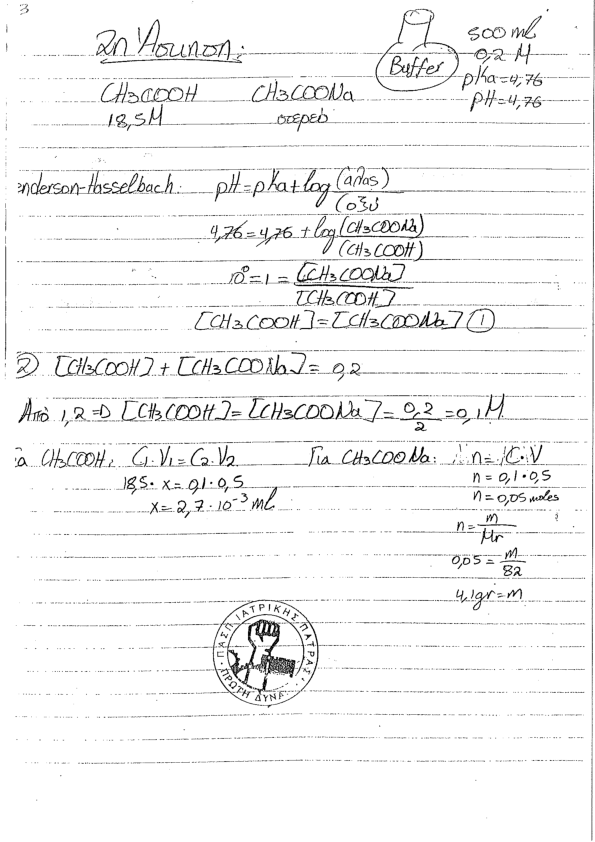 3
2η Άσκηση:
Buffer
500 ml
0,2 M
pKa=4,76
pH=4,76
CH3COOH CH3COONa
18,5M στερεό
enderson-Hasselbach: pH=pKa+log (άλας)
(οξύ
4,76=4,76 + log (CH3COONa)
(CH3COOH)
10⁰=1 = [CH3COONa]
[CH3COOH]
[CH3COOH]=[CH3COONa] ①
② [CH3COOH] + [CH3COONa] = 0,2
Από 1,2 => [CH3COOH]=[CH3COONa]= 0,2 =0,1M
2
ια CH3COOH: C1·V1=C2·V2 Για CH3COONa: n= C·V
18,5· x = 0,1·0,5 n= 0,1·0,5
x= 2,7·10⁻³ ml n= 0,05 moles
n= m
Mr
0,05 = m
82
4,1gr=m
ΠΑΣΠ ΙΑΤΡΙΚΗΣ ΠΑΤΡΑΣ
ΠΡΩΤΗ ΔΥΝΑ